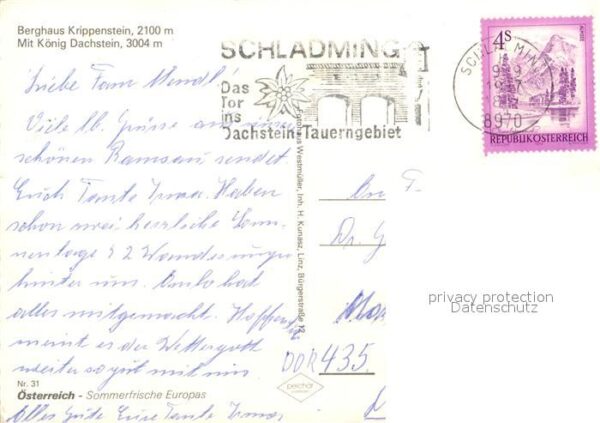 Berghaus Krippenstein, 2100 m
Mit König Dachstein, 3004 m
SCHLADMING
Das
Tor
ins
Dachstein-Tauerngebiet
SCHLADMING
8970
4 S
REPUBLIK ÖSTERREICH
Liebe Fam
Viele lb. Grüsse
schönen Ramsau sendet
Euch Tante Irma. Haben
schon zwei herrliche Son-
nentage & 2 Wanderungen
hinter uns. hat
alles mitgemacht. Hoffentl.
meint es der Wettergott
weiter so gut mit uns
Alles Gute Eure Tante Irma
Berghaus Westmüller, Inh. H. Kunasz, Linz, Bürgerstraße 12
Dr. G
DDR 435
privacy protection
Datenschutz
Nr. 31
Österreich - Sommerfrische Europas